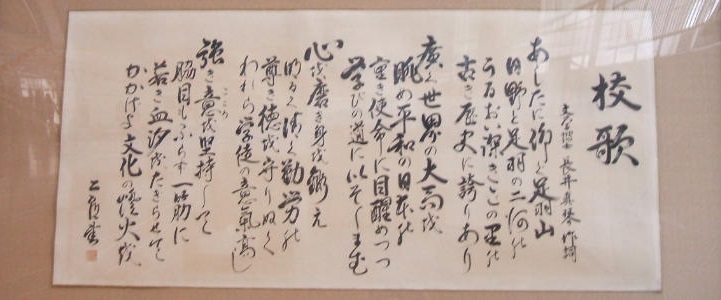 校歌
文学博士 長井真琴 作詞
あしたに仰ぐ足羽山
日野と足羽の二河の
うるおい潔きこの里の
古き歴史に誇りあり
廣く世界の大局を
眺め平和の日本の
重き使命に目醒めつつ
学びの道にいそしまむ
心を磨き身を鍛え
明るく清く勤労の
尊き徳を守りぬく
われら学徒の意氣高し
こころ
強き意を堅持して
脇目もふらず一筋に
若き血汐をたぎらせて
かかげよ文化の火を